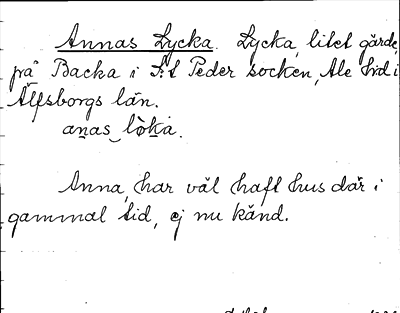 Annas Lycka. Lycka, litet gärde,
på Backa i S:t Peder socken, Ale hd i
Älfsborgs län.
anas lòka.
Anna, har väl haft hus där i
gammal tid, ej nu känd.